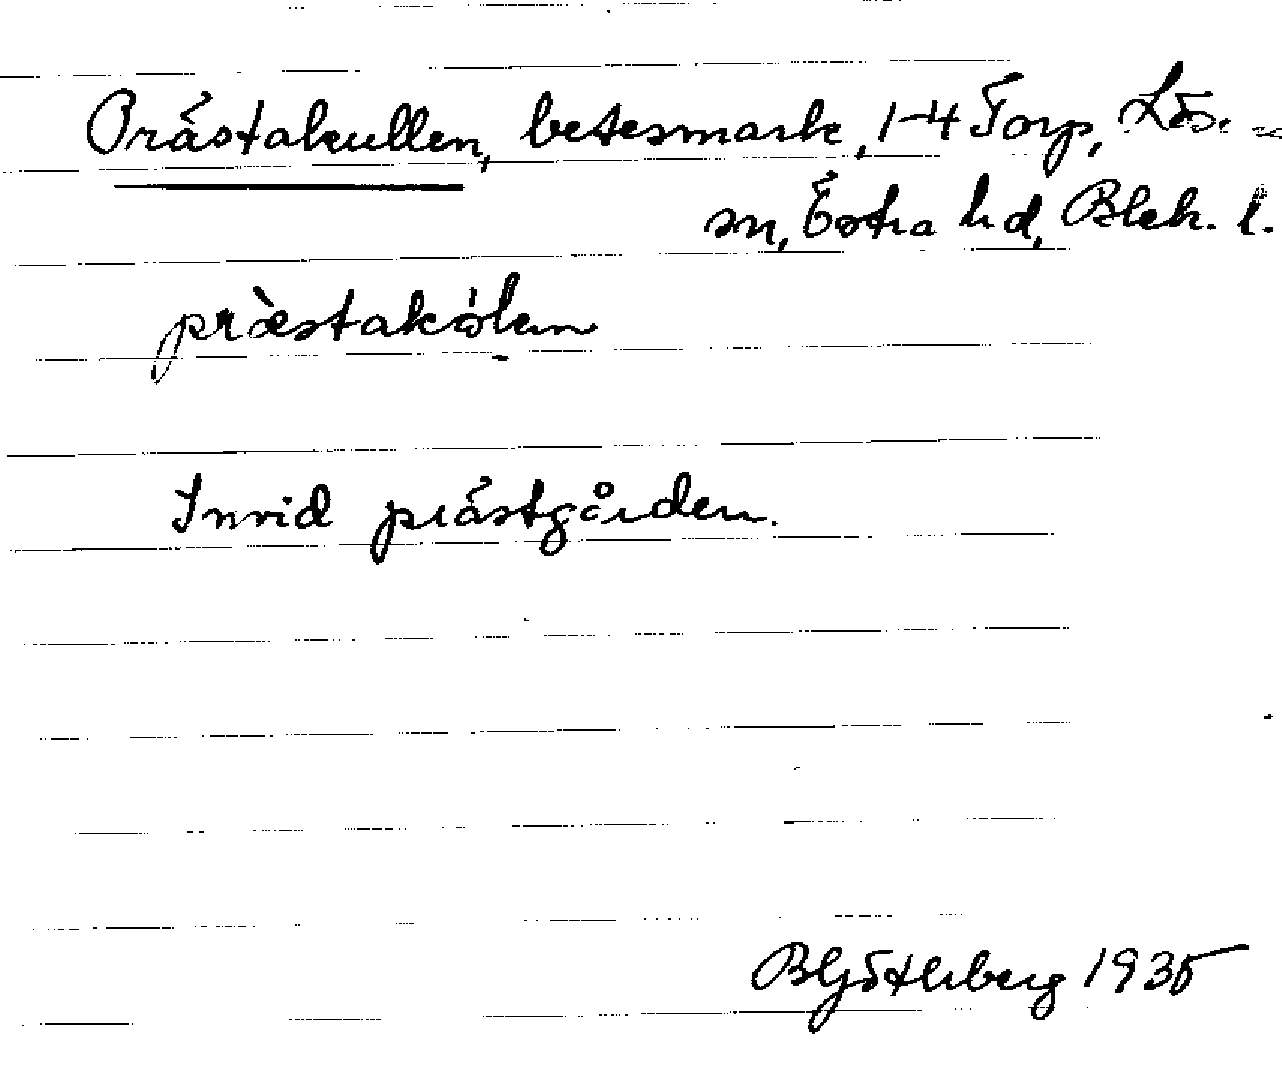 Prästakullen, betesmark, 1-4 Torp, Lösen
sn, Östra hd, Blek. l.
præ̀stakö́lęn
Invid prästgården.
B Götlberg 1935